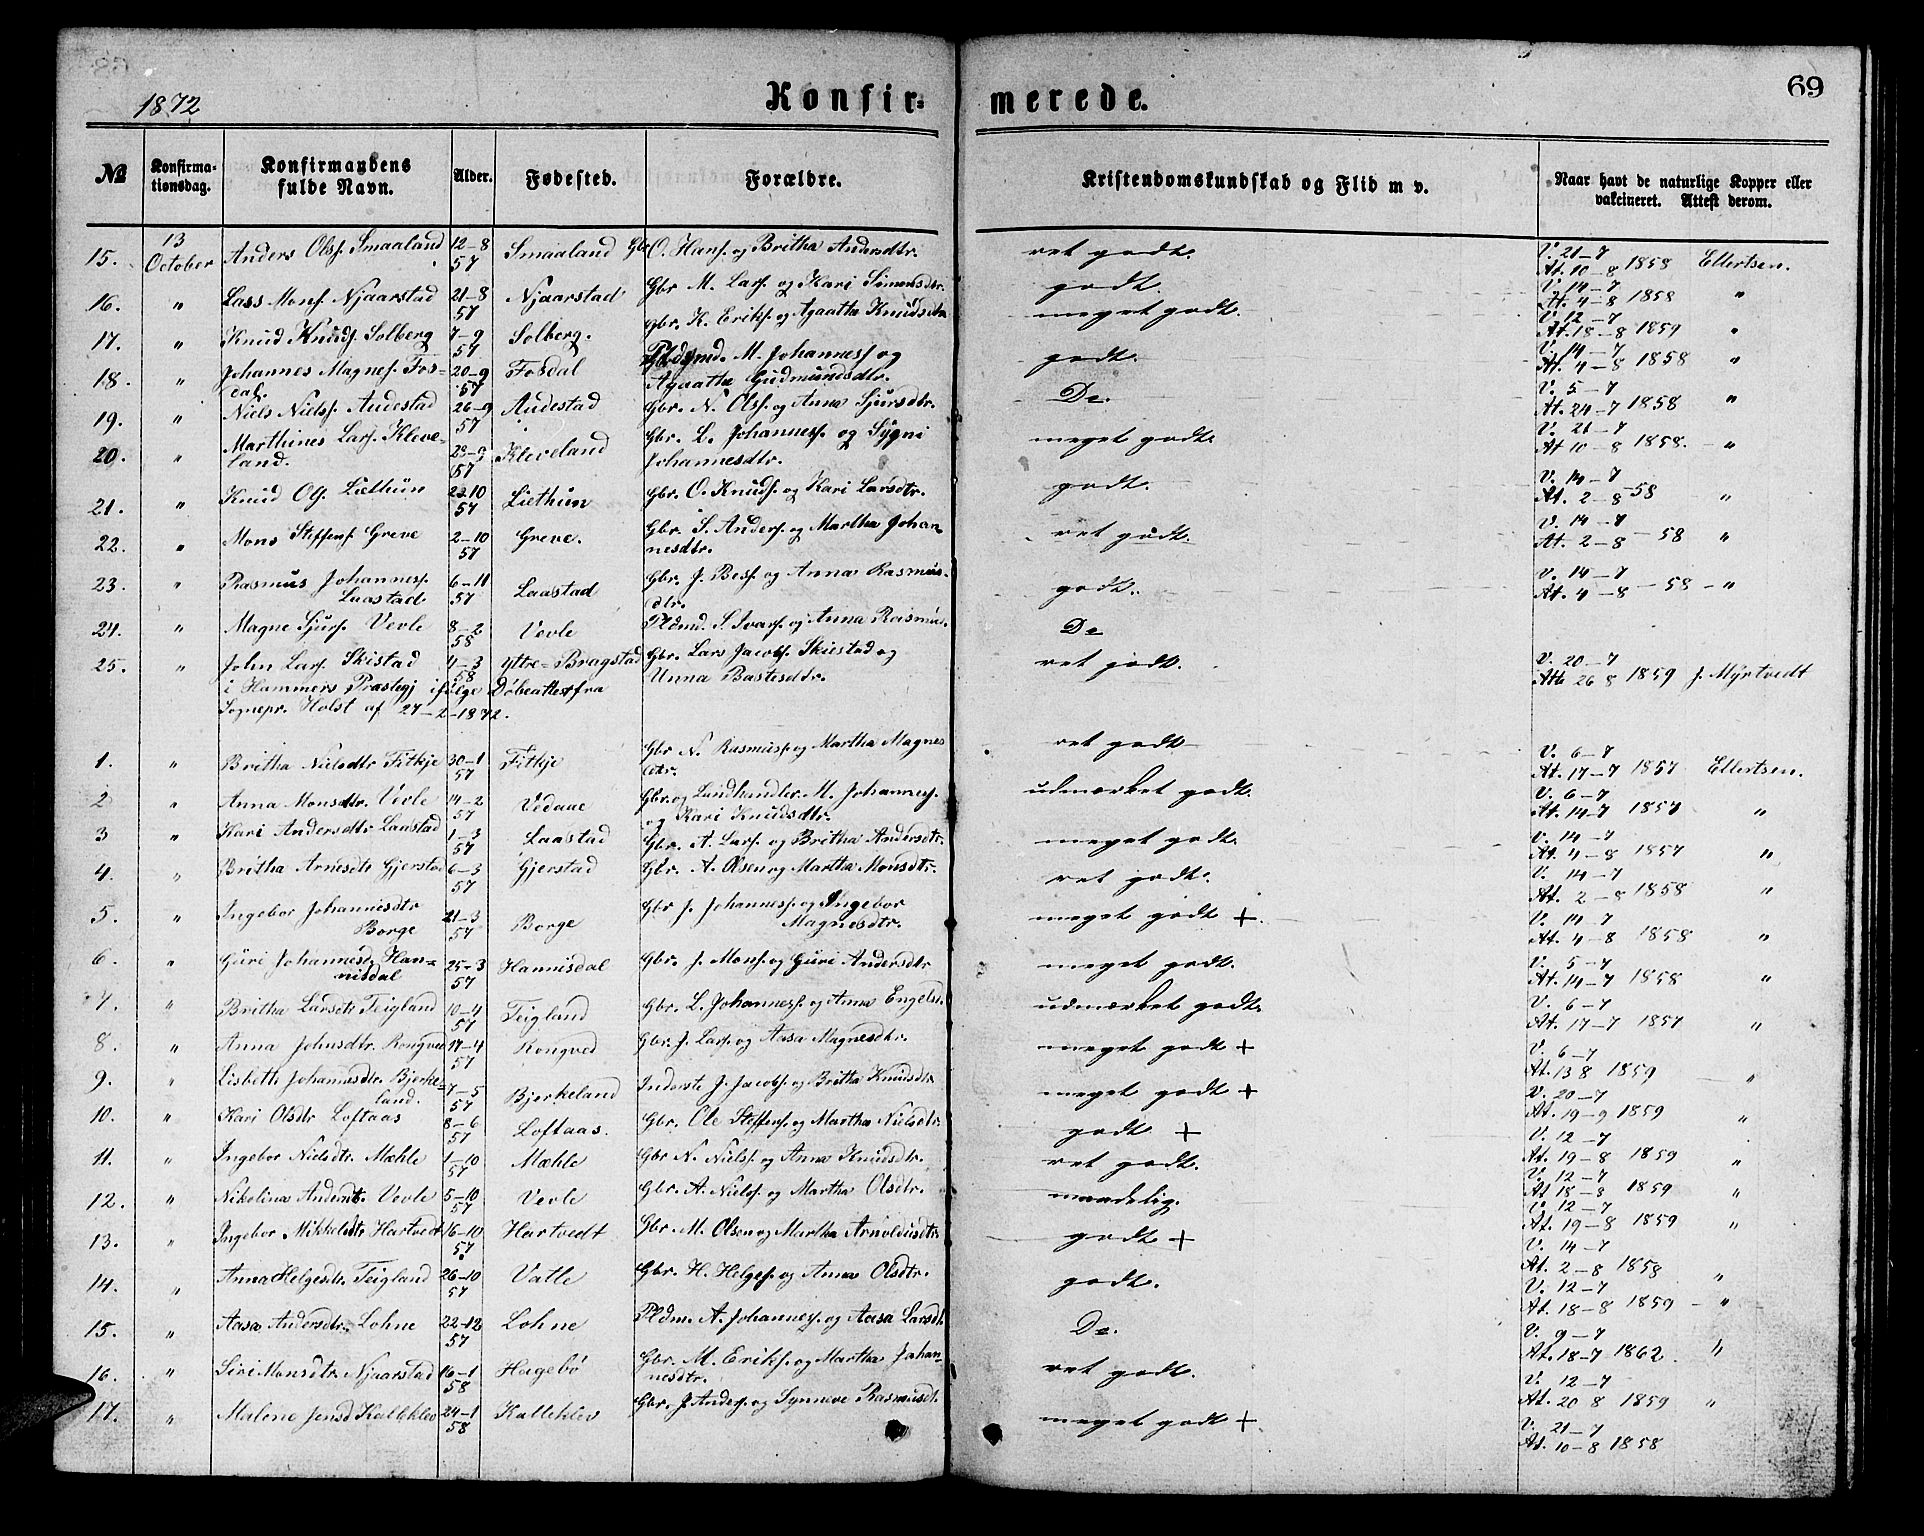 1872 Konfir= merede. 69
№ Konfirma=tionsdag. Konfirmandens fulde Navn. Alder. Fødested. Forældre. Kristendomskundskab og Flid m v. Naar havt de naturlige Kopper eller vakcineret. Attest derom.
15. 13 October Anders Olsf. Smaaland 12-8 57 Smaaland Gbr O. Hansf. og Britha Andersdtr. ret godt. V. 21-7 At. 10-8 1858 Ellertsen.
16. " Lass Monsf. Njaarstad 21-8 57 Njaarstad Gbr M. Larsf. og Kari Simonsdtr. godt. V. 14-7 At. 4-8 1858 "
17. " Knud Knudsf. Solberg 7-9 57 Solberg. Gbr. K. Eriksf. og Agaatha Knudsdtr meget godt. V. 12-7 At. 18-8 1859 "
18. " Johannes Magnesf. Fosdal. 20-9 57 Fosdal Pldsmd. M. Johannesf og Agaatha Gudmundsdtr. godt. V. 14-7 At. 4-8 1858 "
19. " Niels Nielsf. Audestad 26-9 57 Audestad Gbr. N. Olsf. og Anna Sjursdtr. Do. V. 5-7 At. 24-7 1858 "
20. " Marthines Larsf. Kleve-land. 57 Kleveland Gbr. L. Johannesf. og Sygni Johannesdtr. meget godt. V. 21-7 At 10-8 1858. - "
21. " Knud Olsf. Liethun 57 Liethun Gbr. O. Knudsf. og Kari Larsdtr. godt. V. 14-7 At. 2-8-58 "
22. " Mons Steffensf. Greve 2-10 57 Greve. Gbr. S. Andersf. og Martha Johan-nesdtr. ret godt. V. 14-7 At. 2-8-58 "
23. " Rasmus Johannesf. Laastad 6-11 57 Laastad Gbr. J. Besf. og Anna Rasmus-dtr. godt. V. 14-7 At. 4-8-58 - "
24. " Magne Sjursf. Vevle 8-2 58 Vevle Pldsmd. S. Ivarsf. og Anna Rasmus. Do
25. " John Larsf. Skistad 4-3 58 Yttre=Bragstad Gbr. Lars Jacobsf. Skistad og Unna Bastesdtr. ret godt. V. 20-7 Att. 26 8 1859 J. Myrtvedt
i Hammers Præstegj ifølge Døbeattest fra
Sognepr. Holst af 27-2-1872.
1. " Britha Nielsdtr Fitkje 30-1 57 Fitkje Gbr N. Rasmusf. og Martha Magnes dtr. ret godt V. 6-7 At. 17-7 1857 Ellertsen.
2 " Anna Monsdtr. Vevle 14-2 57 Vedaae Gbr. og Landhandler M. Johannesf. og Kari Knudsdtr. udmærket godt. V. 6-7 At. 14-7 1857 "
3 " Kari Andersdtr Laastad 1-3 57 Laastad Gbr. A. Larsf. og Britha Andersdtr. meget godt. V. 14-7 At. 4-8 1857 "
4. " Britha Arnesdtr Gjerstad 6-3 57 Gjerstad Gbr. A. Olsen og Martha Monsdtr. ret godt. V. 14-7 At. 2-8 1858 "
5. " Ingebor Johannesdtr Borge 21-3 57 Borge Gbr J. Johannesf. og Ingebor Magnesdtr. meget godt +. V. 14-7 At. 4-8 1858 "
6. " Guri Johannesd. Han=nisdal 25-3 57 Hannisdal Gbr. J. Monsf. og Guri Andersdtr meget godt. V. 5-7 At. 14-7 1858 "
7. " Britha Larsdtr Teigland 10-4 57 Teigland Gbr. L. Johannesf. og Anna Engelsd. udmærket godt. V. 6-7 At. 17-7 1857 "
8. " Anna Johnsdtr. Rongved 17-4 57 Rongved Gbr. J. Larsf. og Aasa Magnesdtr. meget godt + V. 6-7 At. 13 8 1859
9. " Lisbeth Johannesdtr. Bjerke-land. 7-5 57 Bjerkeland Inderste J. Jacobsf. og Britha Knudsdtr meget godt + V. 20-7 At. 19-9 1859 "
10. " Kari Olsdtr Loftaas 8-6 57 Loftaas. Gbr. Ole Steffensf. og Martha Nielsdtr. godt + V. 12-7 At. 19-8 1859 "
11. " Ingebor Nielsdtr. Mæhle 1-10 57 Mæhle Gbr N. Nielsf. og Anna Knudsdtr. ret godt. V. 12-7 At 18-8 1859 "
12. " Nikolina Andersdt. Vevle 5-10 57 Vevle Gbr. A. Nielsf. og Martha Olsdtr. maadelig. V. 12-7 At. 19-8 1859 "
13. " Ingebor Mikkelsdtr Hartvedt 16-10 57 Hartvedt Gbr. M. Olsen og Martha Arnoldusdtr. godt + V. 14-7 At. 2-8 1858 "
14. " Anna Helgesdtr. Teigland 26-10 57 Vatle Gbr. H. Helgesf. og Anna Olsdtr. godt. V. 12-7 At. 18-8 1859 - "
15. " Aasa Andersdtr. Lohne 22-12 57 Lohne Pldm. A. Johannesf. og Aasa Larsdt. Do. V. 9-7 At. 18-7 1862. "
16. " Siri Monsdtr. Njaarstad 16-1 58 Hagebø Gbr. M. Eriksf. og Martha Johan-nesdtr. ret godt. V. 12-7 At. 20 8 1859 "
17. " Malene Jensd Kalleklev 24-1 58 Kalleklev Gbr. J. Andersf. og Synneve Rasmusdt. meget godt + V. 21-7 At. 10-8 1858